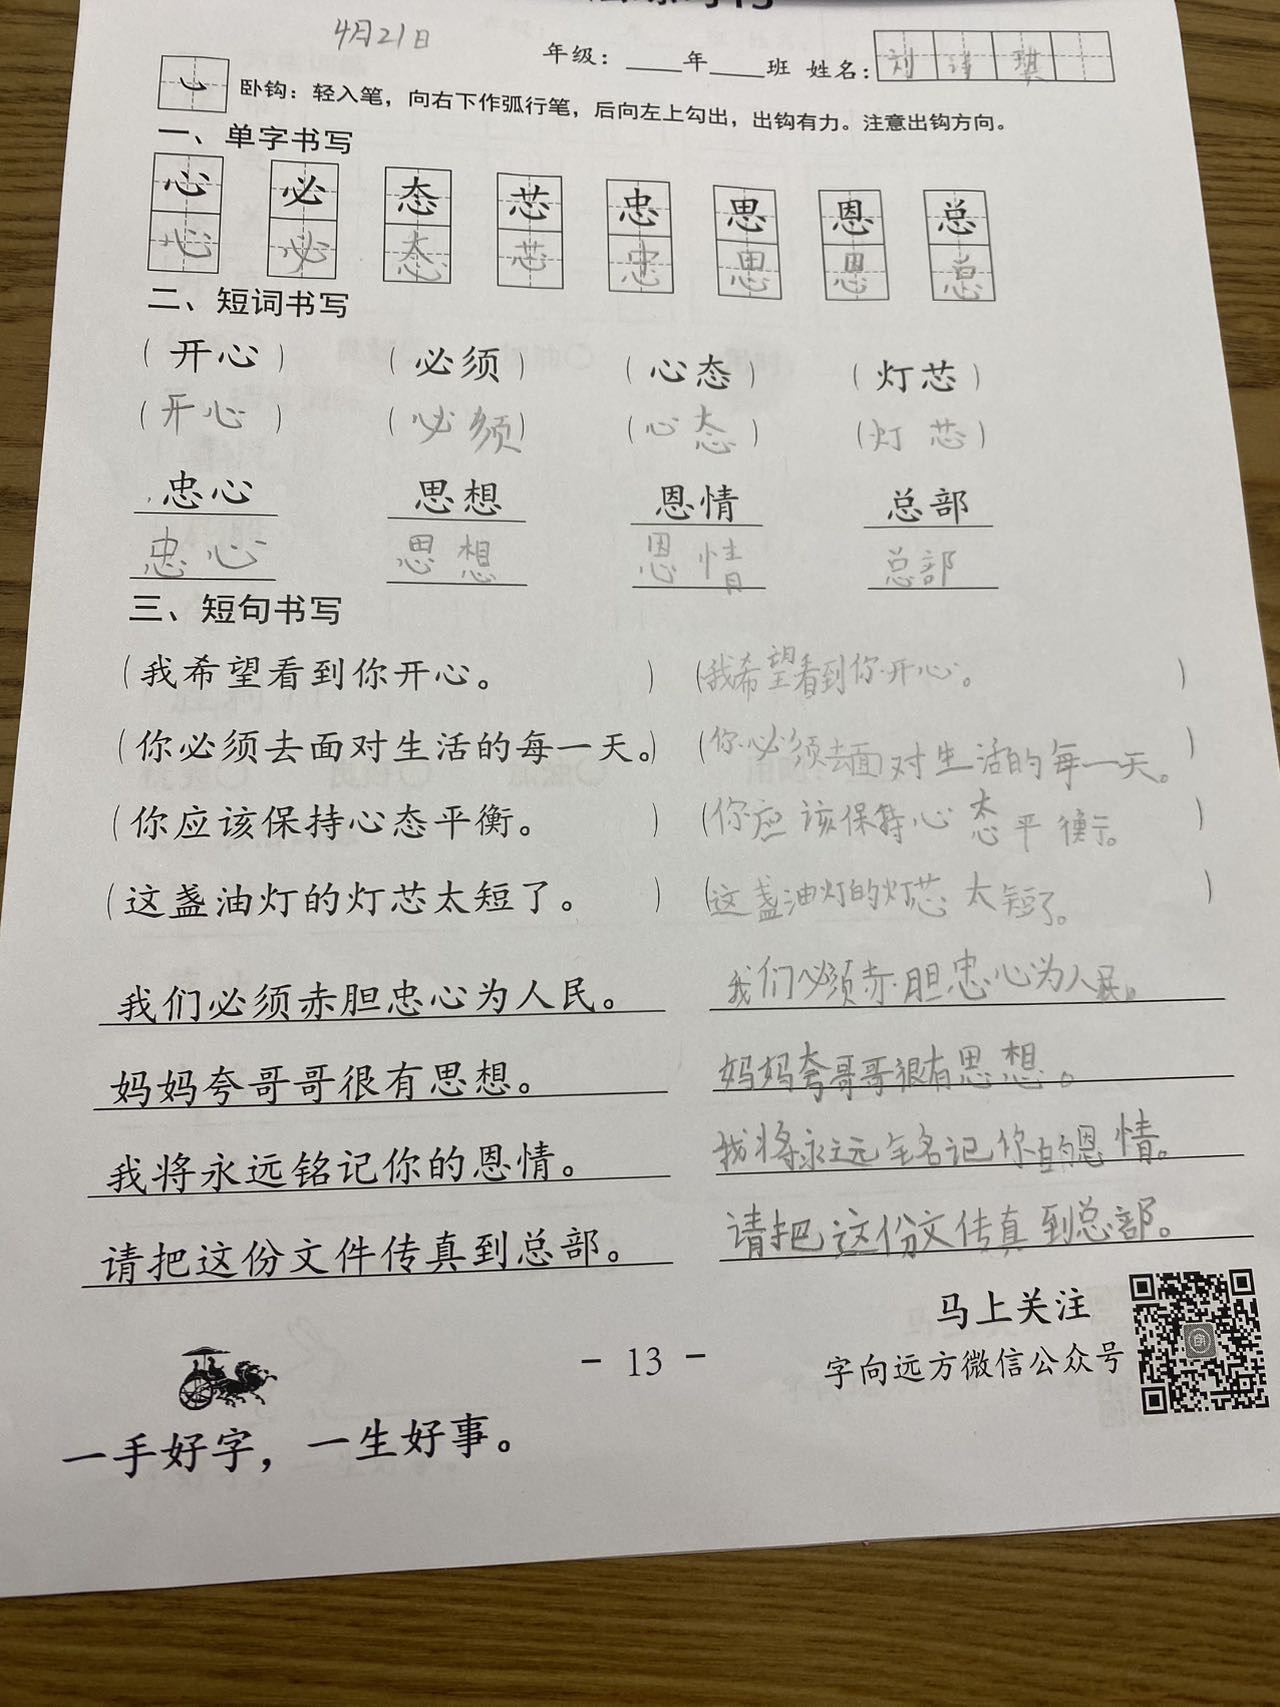 4月21日
年级：____年____班 姓名：刘诗琪
卧钩：轻入笔，向右下作弧行笔，后向左上勾出，出钩有力。注意出钩方向。
一、单字书写
心 必 态 芯 忠 思 恩 总
心 必 态 芯 忠 思 恩 总
二、短词书写
（开心） （必须） （心态） （灯芯）
（开心） （必须） （心态） （灯芯）
忠心 思想 恩情 总部
忠心 思想 恩情 总部
三、短句书写
（我希望看到你开心。） （我希望看到你开心。）
（你必须去面对生活的每一天。） （你必须去面对生活的每一天。）
（你应该保持心态平衡。） （你应该保持心态平衡。）
（这盏油灯的灯芯太短了。） （这盏油灯的灯芯太短了。）
我们必须赤胆忠心为人民。 我们必须赤胆忠心为人民。
妈妈夸哥哥很有思想。 妈妈夸哥哥很有思想。
我将永远铭记你的恩情。 我将永远铭记你的恩情。
请把这份文件传真到总部。 请把这份文传真到总部。
马上关注
字向远方微信公众号
- 13 -
一手好字，一生好事。